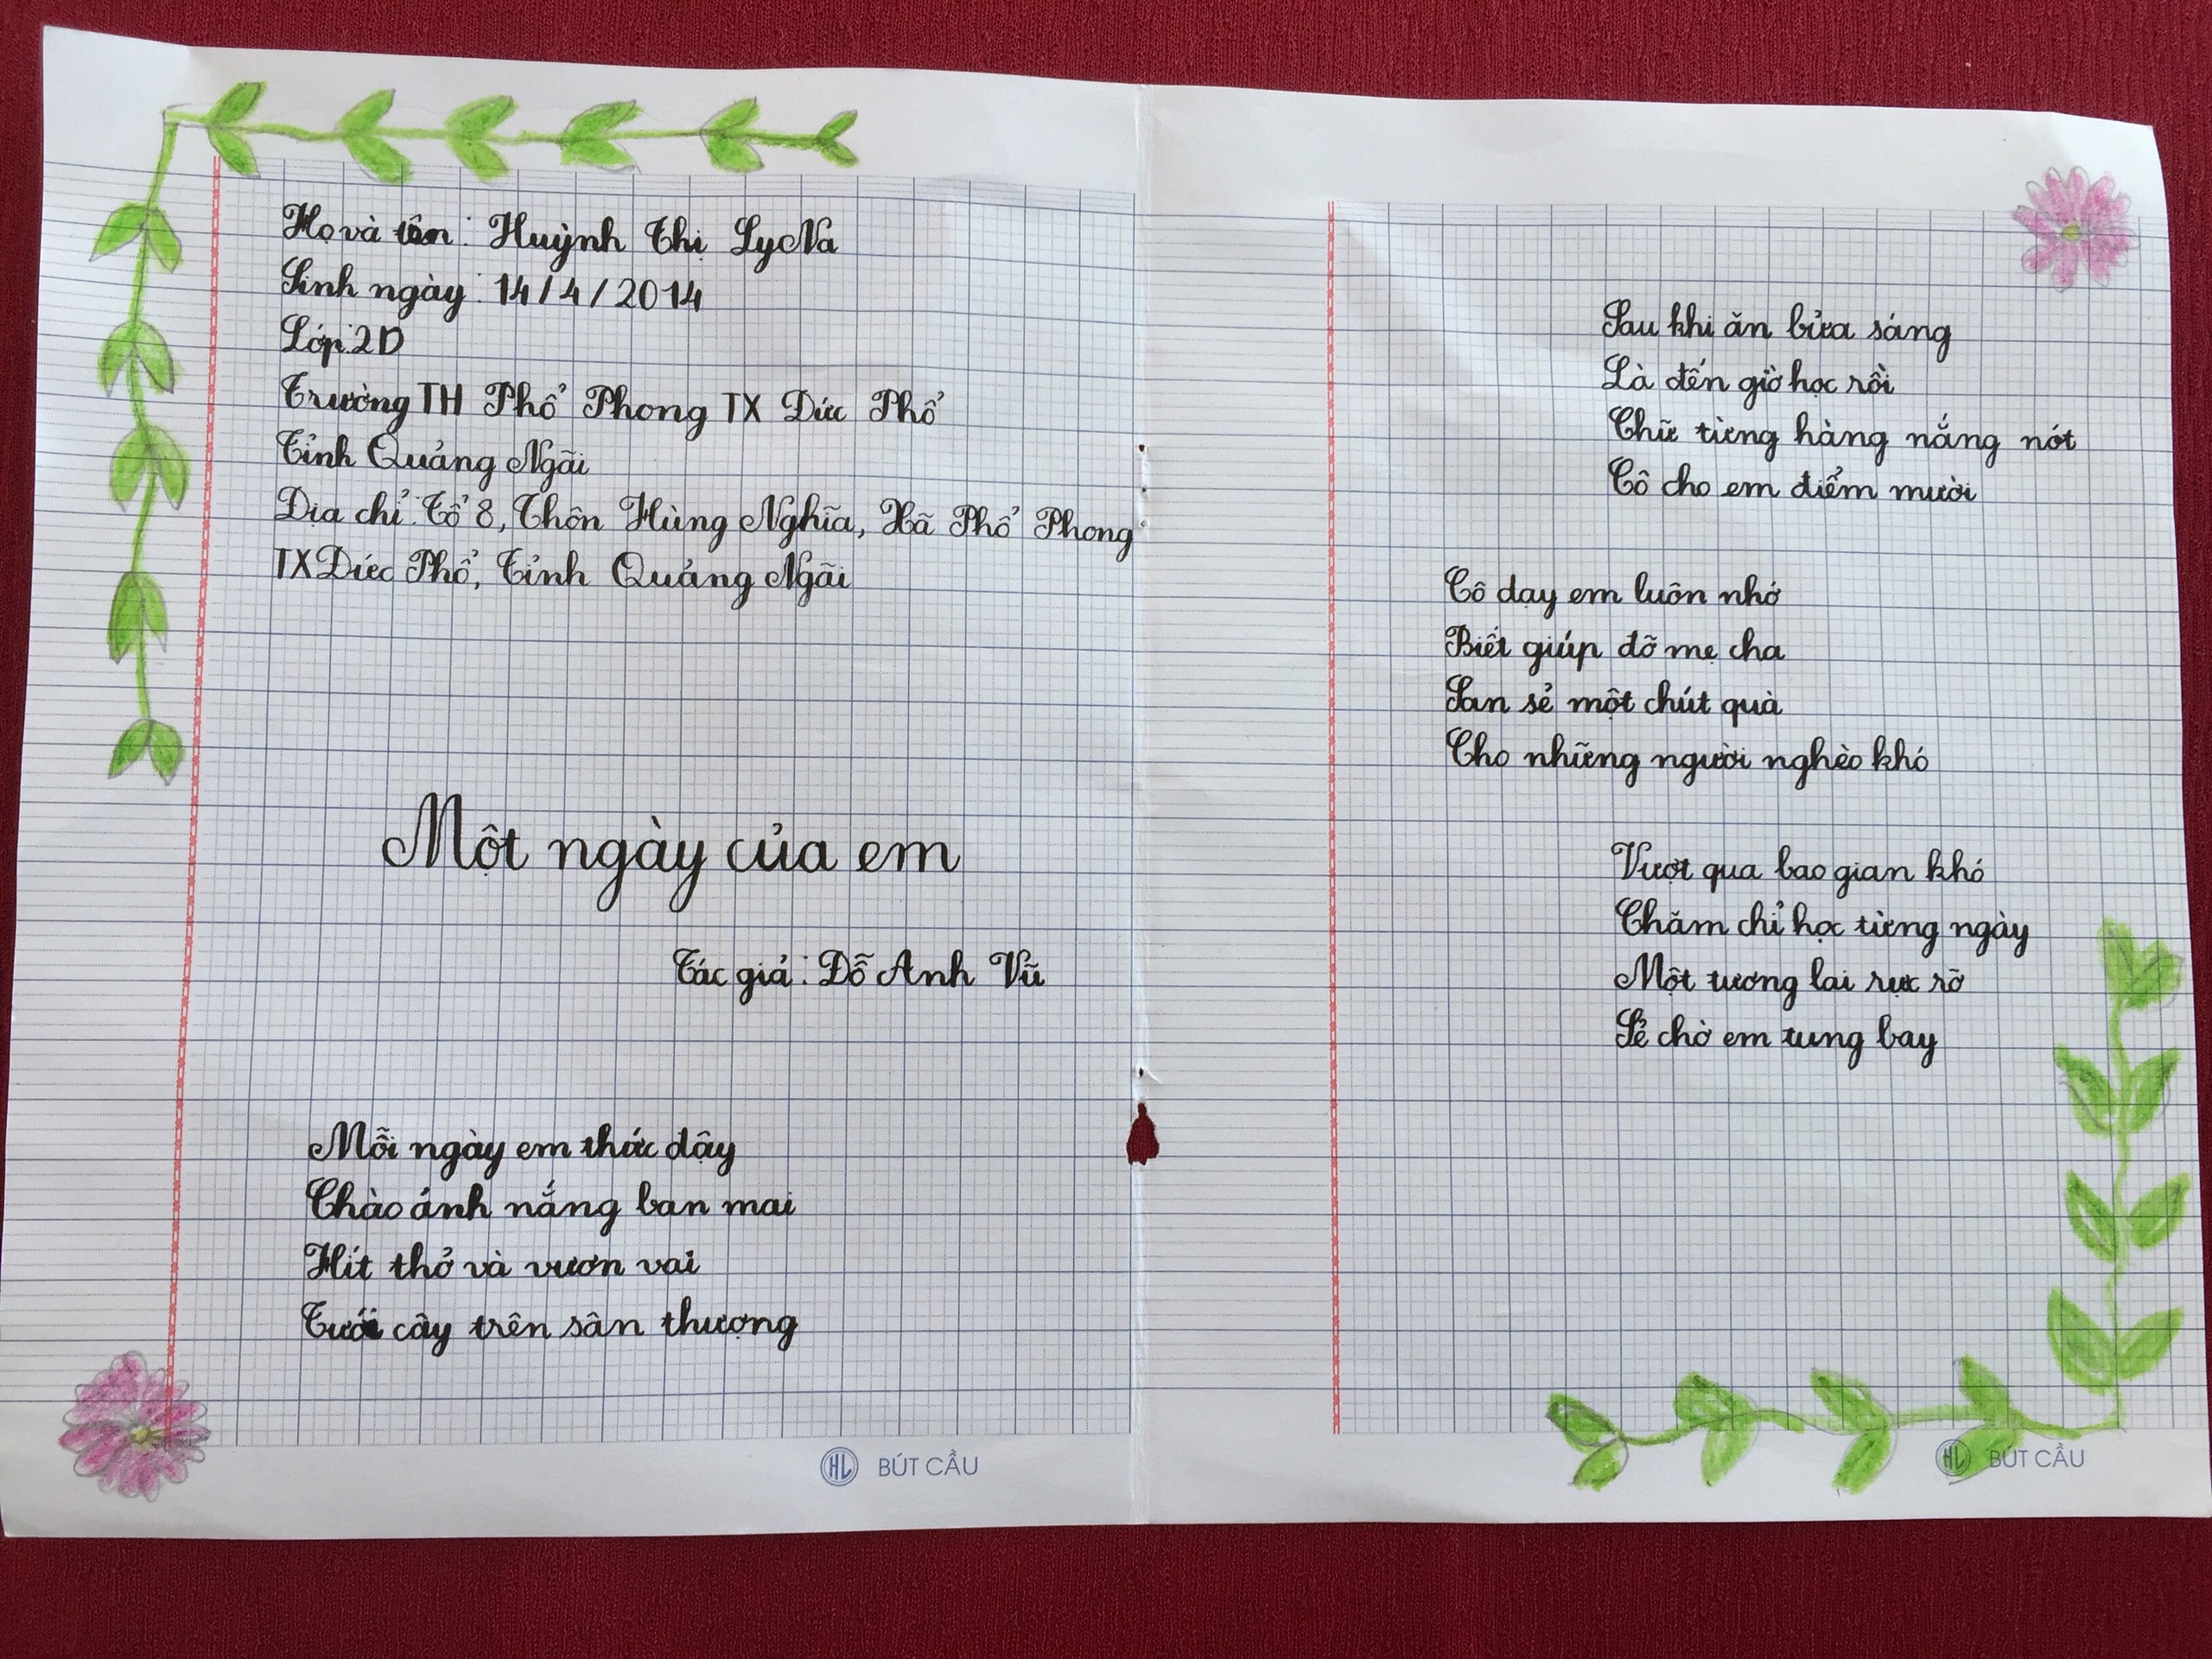 Họ và tên: Huỳnh Thị Ly Na
Sinh ngày: 14/4/2014
Lớp: 2D
Trường TH Phổ Phong TX Đức Phổ
Tỉnh Quảng Ngãi
Địa chỉ: Tổ 8, Thôn Hùng Nghĩa, Xã Phổ Phong
TX Đức Phổ, Tỉnh Quảng Ngãi
Một ngày của em
Tác giả: Đỗ Anh Vũ
Mỗi ngày em thức dậy
Chào ánh nắng ban mai
Hít thở và vươn vai
Tưới cây trên sân thượng
HL BÚT CẦU
Sau khi ăn bửa sáng
Là đến giờ học rồi
Chữ từng hàng nắng nót
Cô cho em điểm mười
Cô dạy em luôn nhớ
Biết giúp đỡ mẹ cha
San sẻ một chút quà
Cho những người nghèo khó
Vượt qua bao gian khó
Chăm chỉ học từng ngày
Một tương lai rực rỡ
Sẻ chờ em tung bay
HL BÚT CẦU